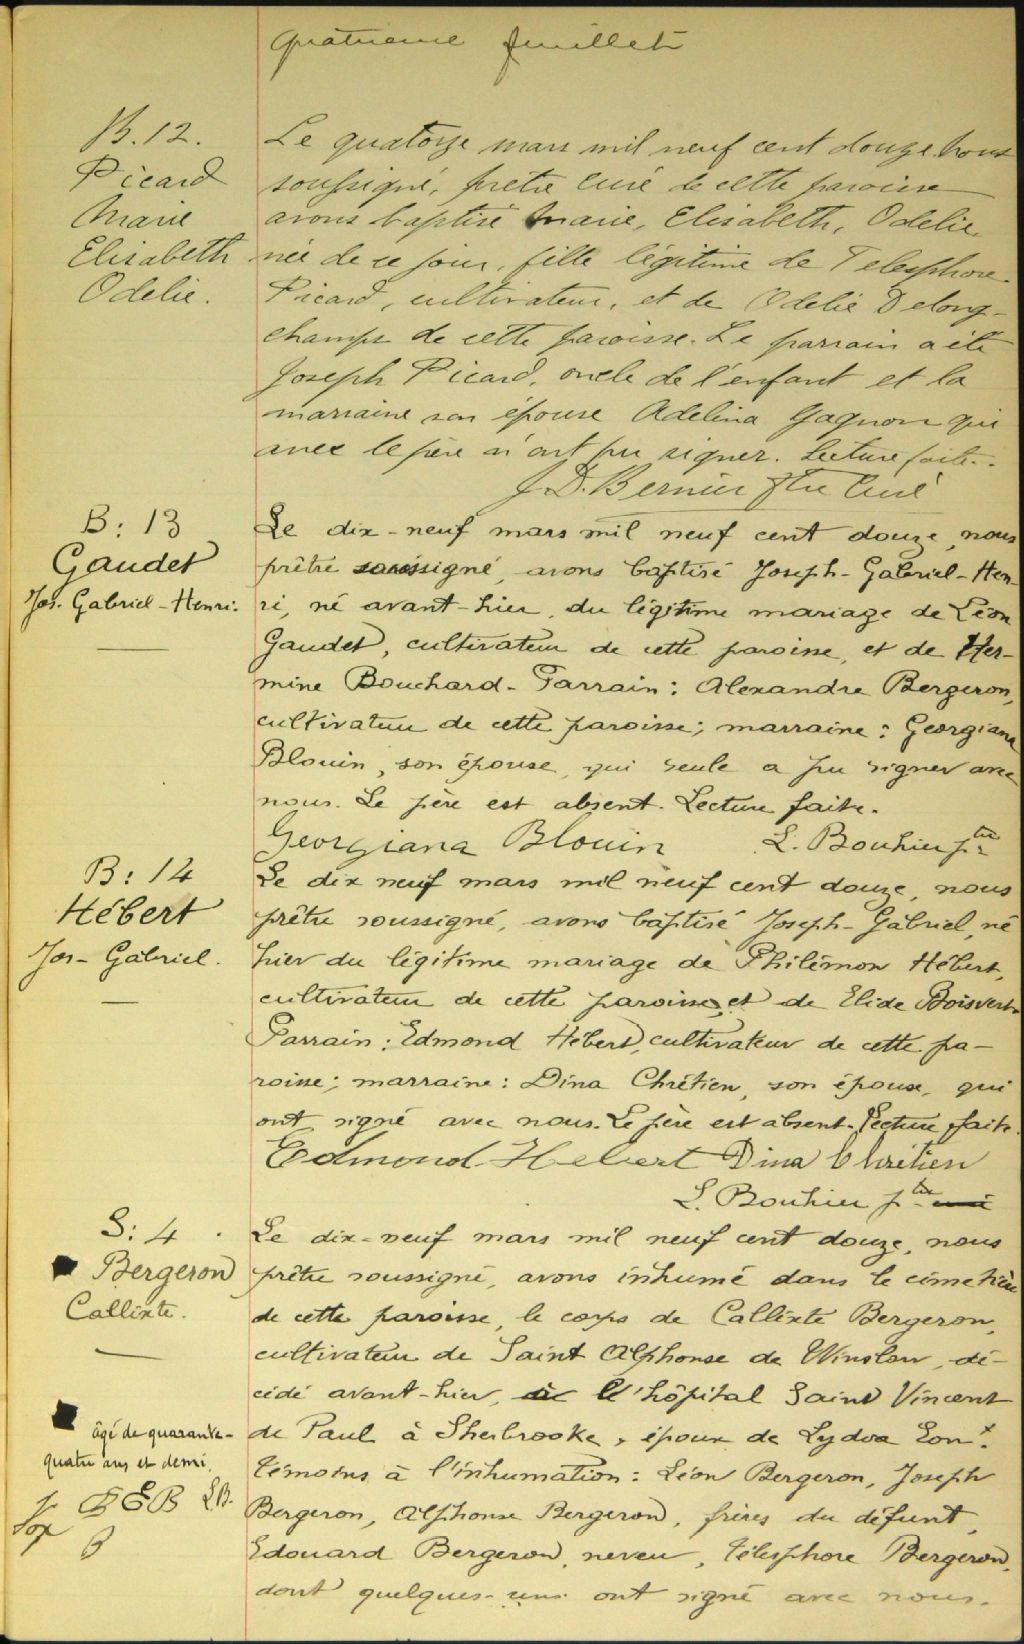 quatrieme feuillet
B. 12.
Picard
Marie
Elisabeth
Odelie.
Le quatorze mars mil neuf cent douze Nous
soussigné, prêtre curé de cette paroisse
avons baptisé Marie, Elisabeth, Odelie,
née de ce jour, fille légitime de Telesphore
Picard, cultivateur, et de Odelie Delong-
champs de cette paroisse. Le parrain a été
Joseph Picard, oncle de l'enfant et la
marraine son épouse Adelina Gagnon qui
avec le père n'ont pu signer. Lecture faite.
J. D. Bernier Ptre Curé
B: 13
Gaudet
Jos. Gabriel-Henri.
Le dix-neuf mars mil neuf cent douze, nous
prêtre soussigné, avons baptisé Joseph-Gabriel-Hen-
ri, né avant-hier, du légitime mariage de Léon
Gaudet, cultivateur de cette paroisse, et de Her-
mine Bouchard. Parrain: Alexandre Bergeron,
cultivateur de cette paroisse; marraine: Georgiana
Blouin, son épouse, qui seule a pu signer avec
nous. Le père est absent. Lecture faite.
Georgiana Blouin L. Bouhier ptre
B: 14
Hébert
Jos-Gabriel.
Le dix neuf mars mil neuf cent douze, nous
prêtre soussigné, avons baptisé Joseph-Gabriel, né
hier du légitime mariage de Philémon Hébert,
cultivateur de cette paroisse, et de Elide Boisvert.
Parrain: Edmond Hébert, cultivateur de cette pa-
roisse; marraine: Dina Chrétien, son épouse, qui
ont signé avec nous. Le père est absent. Lecture faite.
Edmond Hebert Dina Chrétien
L. Bouhier ptre
S: 4
Bergeron
Callixte.
âgé de quarante-
quatre ans et demi.
E B L.B.
B
Le dix-neuf mars mil neuf cent douze, nous
prêtre soussigné, avons inhumé dans le cimetière
de cette paroisse, le corps de Callixte Bergeron,
cultivateur de Saint Alphonse de Winslow, dé-
cédé avant-hier, à l'hôpital Saint Vincent
de Paul à Sherbrooke, époux de Lydia
témoins à l'inhumation: Léon Bergeron, Joseph
Bergeron, Alphonse Bergeron, frères du défunt,
Edouard Bergeron, neveu, Télesphore Bergeron,
dont quelques-uns ont signé avec nous.